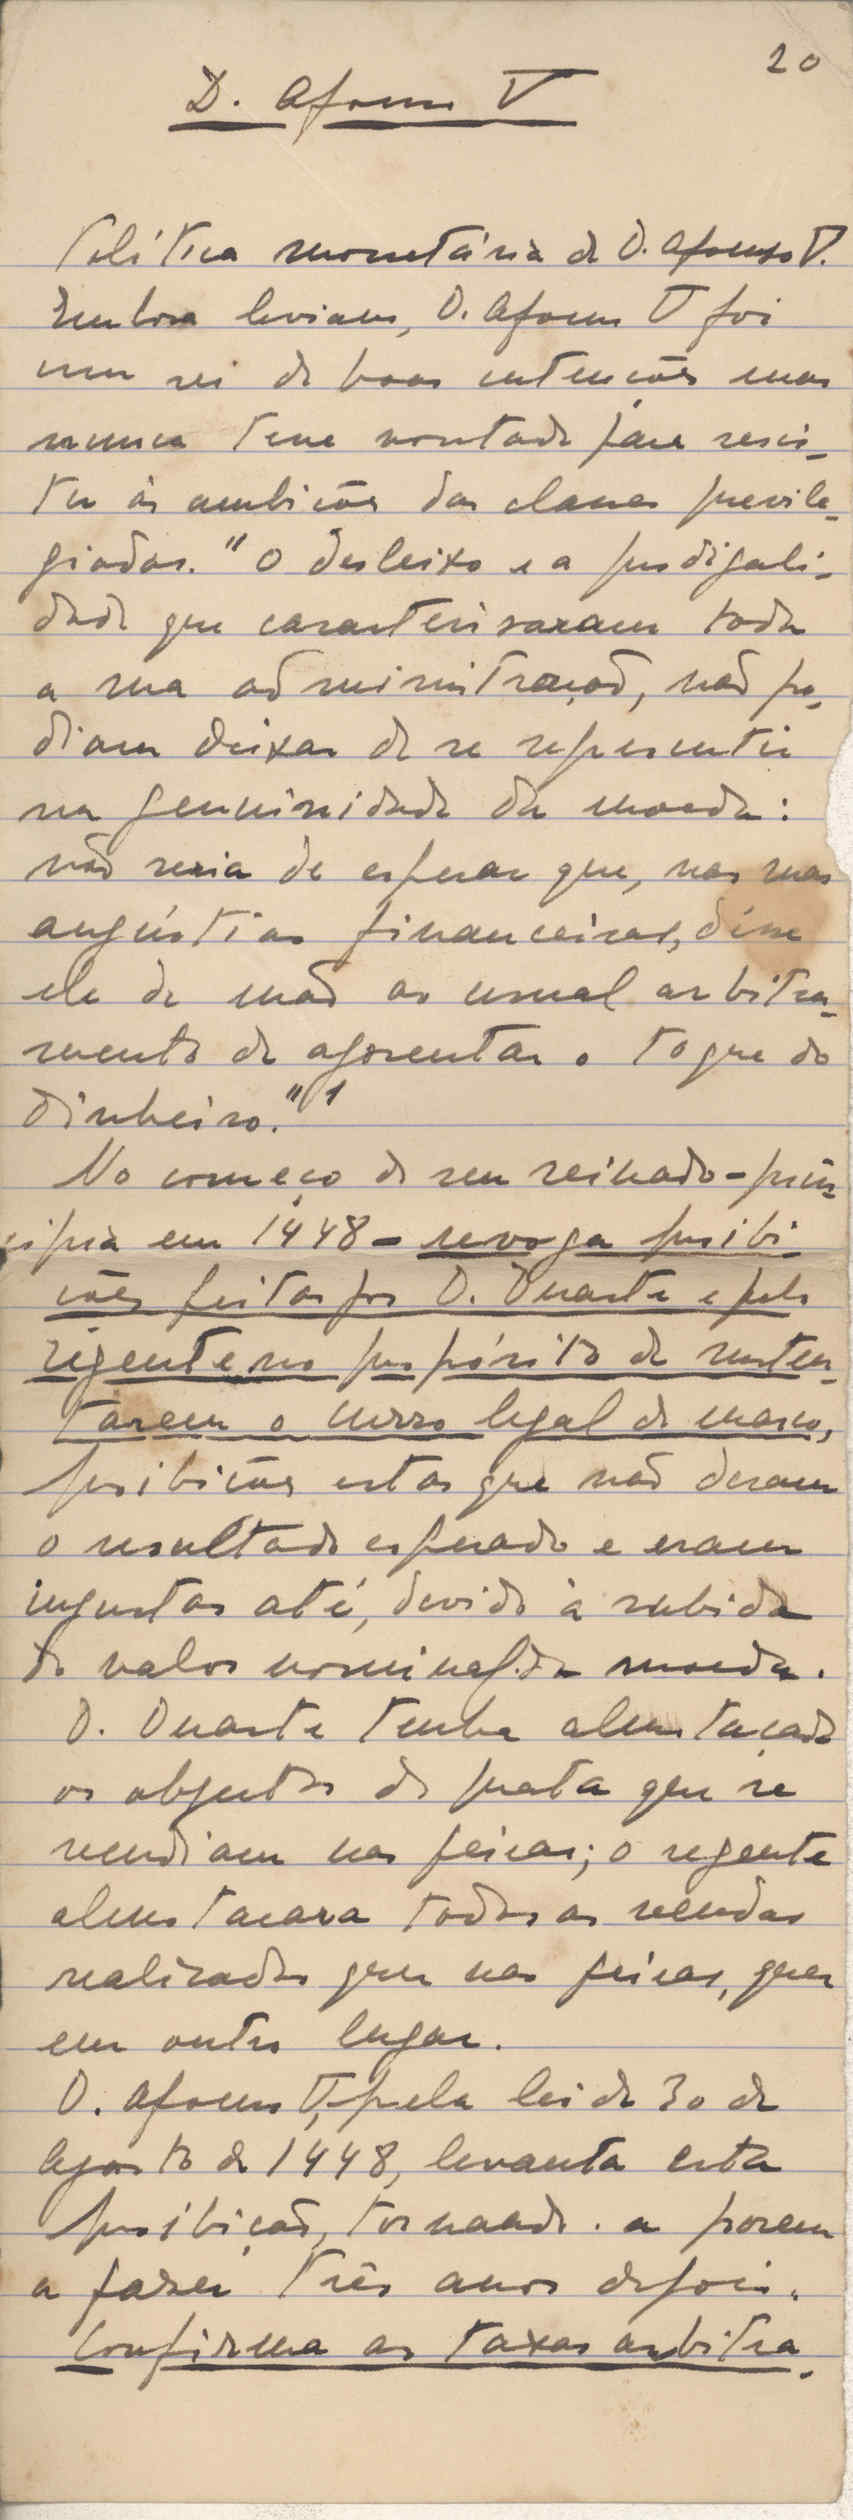 20
D. Afonso V
Política monetária de D. Afonso V.
Embora leviano, D. Afonso V foi
um rei de boas intenções mas
nunca teve vontade para resis-
tir às ambições das classes previle-
giadas. "O desleixo e a prodigali-
dade que caracterisaram toda
a sua administração, não po-
diam deixar de se repercutir
na genuinidade da moeda:
não seria de esperar que, nas suas
angústias financeiras, désse
ele de mão ao usual arbitra-
mento de aforentar o toque do
dinheiro."1
No começo de seu reinado - prin-
cipia em 1448 - revoga proibi-
ções feitas por D. Duarte e pelo
regente no propósito de susten-
tarem o curso legal do marco,
proibições estas que não deram
o resultado esperado e eram
injustas até, devido à subida
do valor nominal da moeda.
D. Duarte tinha almotaçado
os objectos de prata que se
vendiam nas feiras; o regente
almotaçara todas as vendas
realizadas quer nas feiras, quer
em outro lugar.
D. Afonso V, pela lei de 30 de
Agosto de 1448, levanta esta
proibição, tornando-a porem
a fazer três anos depois.
Confirma as taxas arbitra-